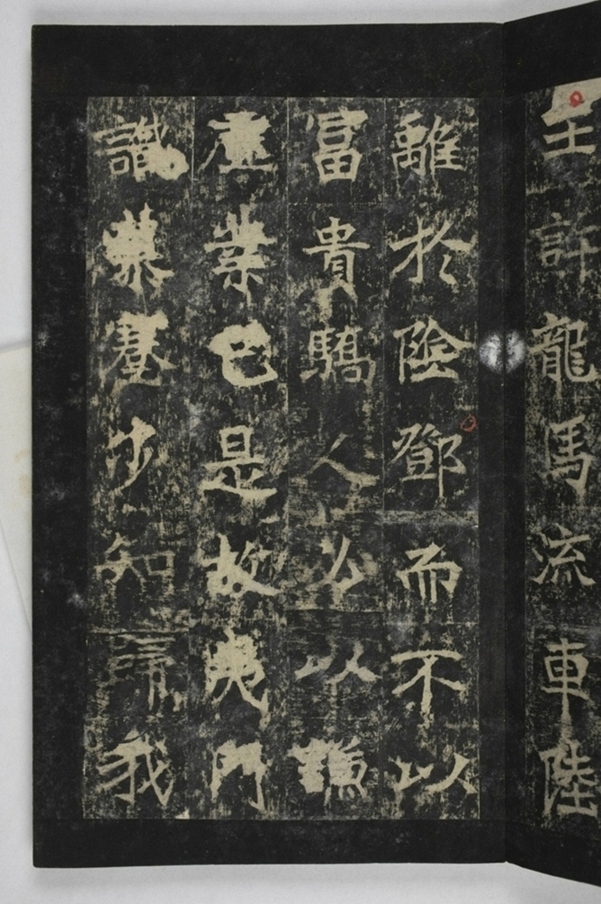 王許龍馬流車陸
離於陰鄧而不以
富貴驕人必以謙
虛業已是故夷門
識慕知歸我